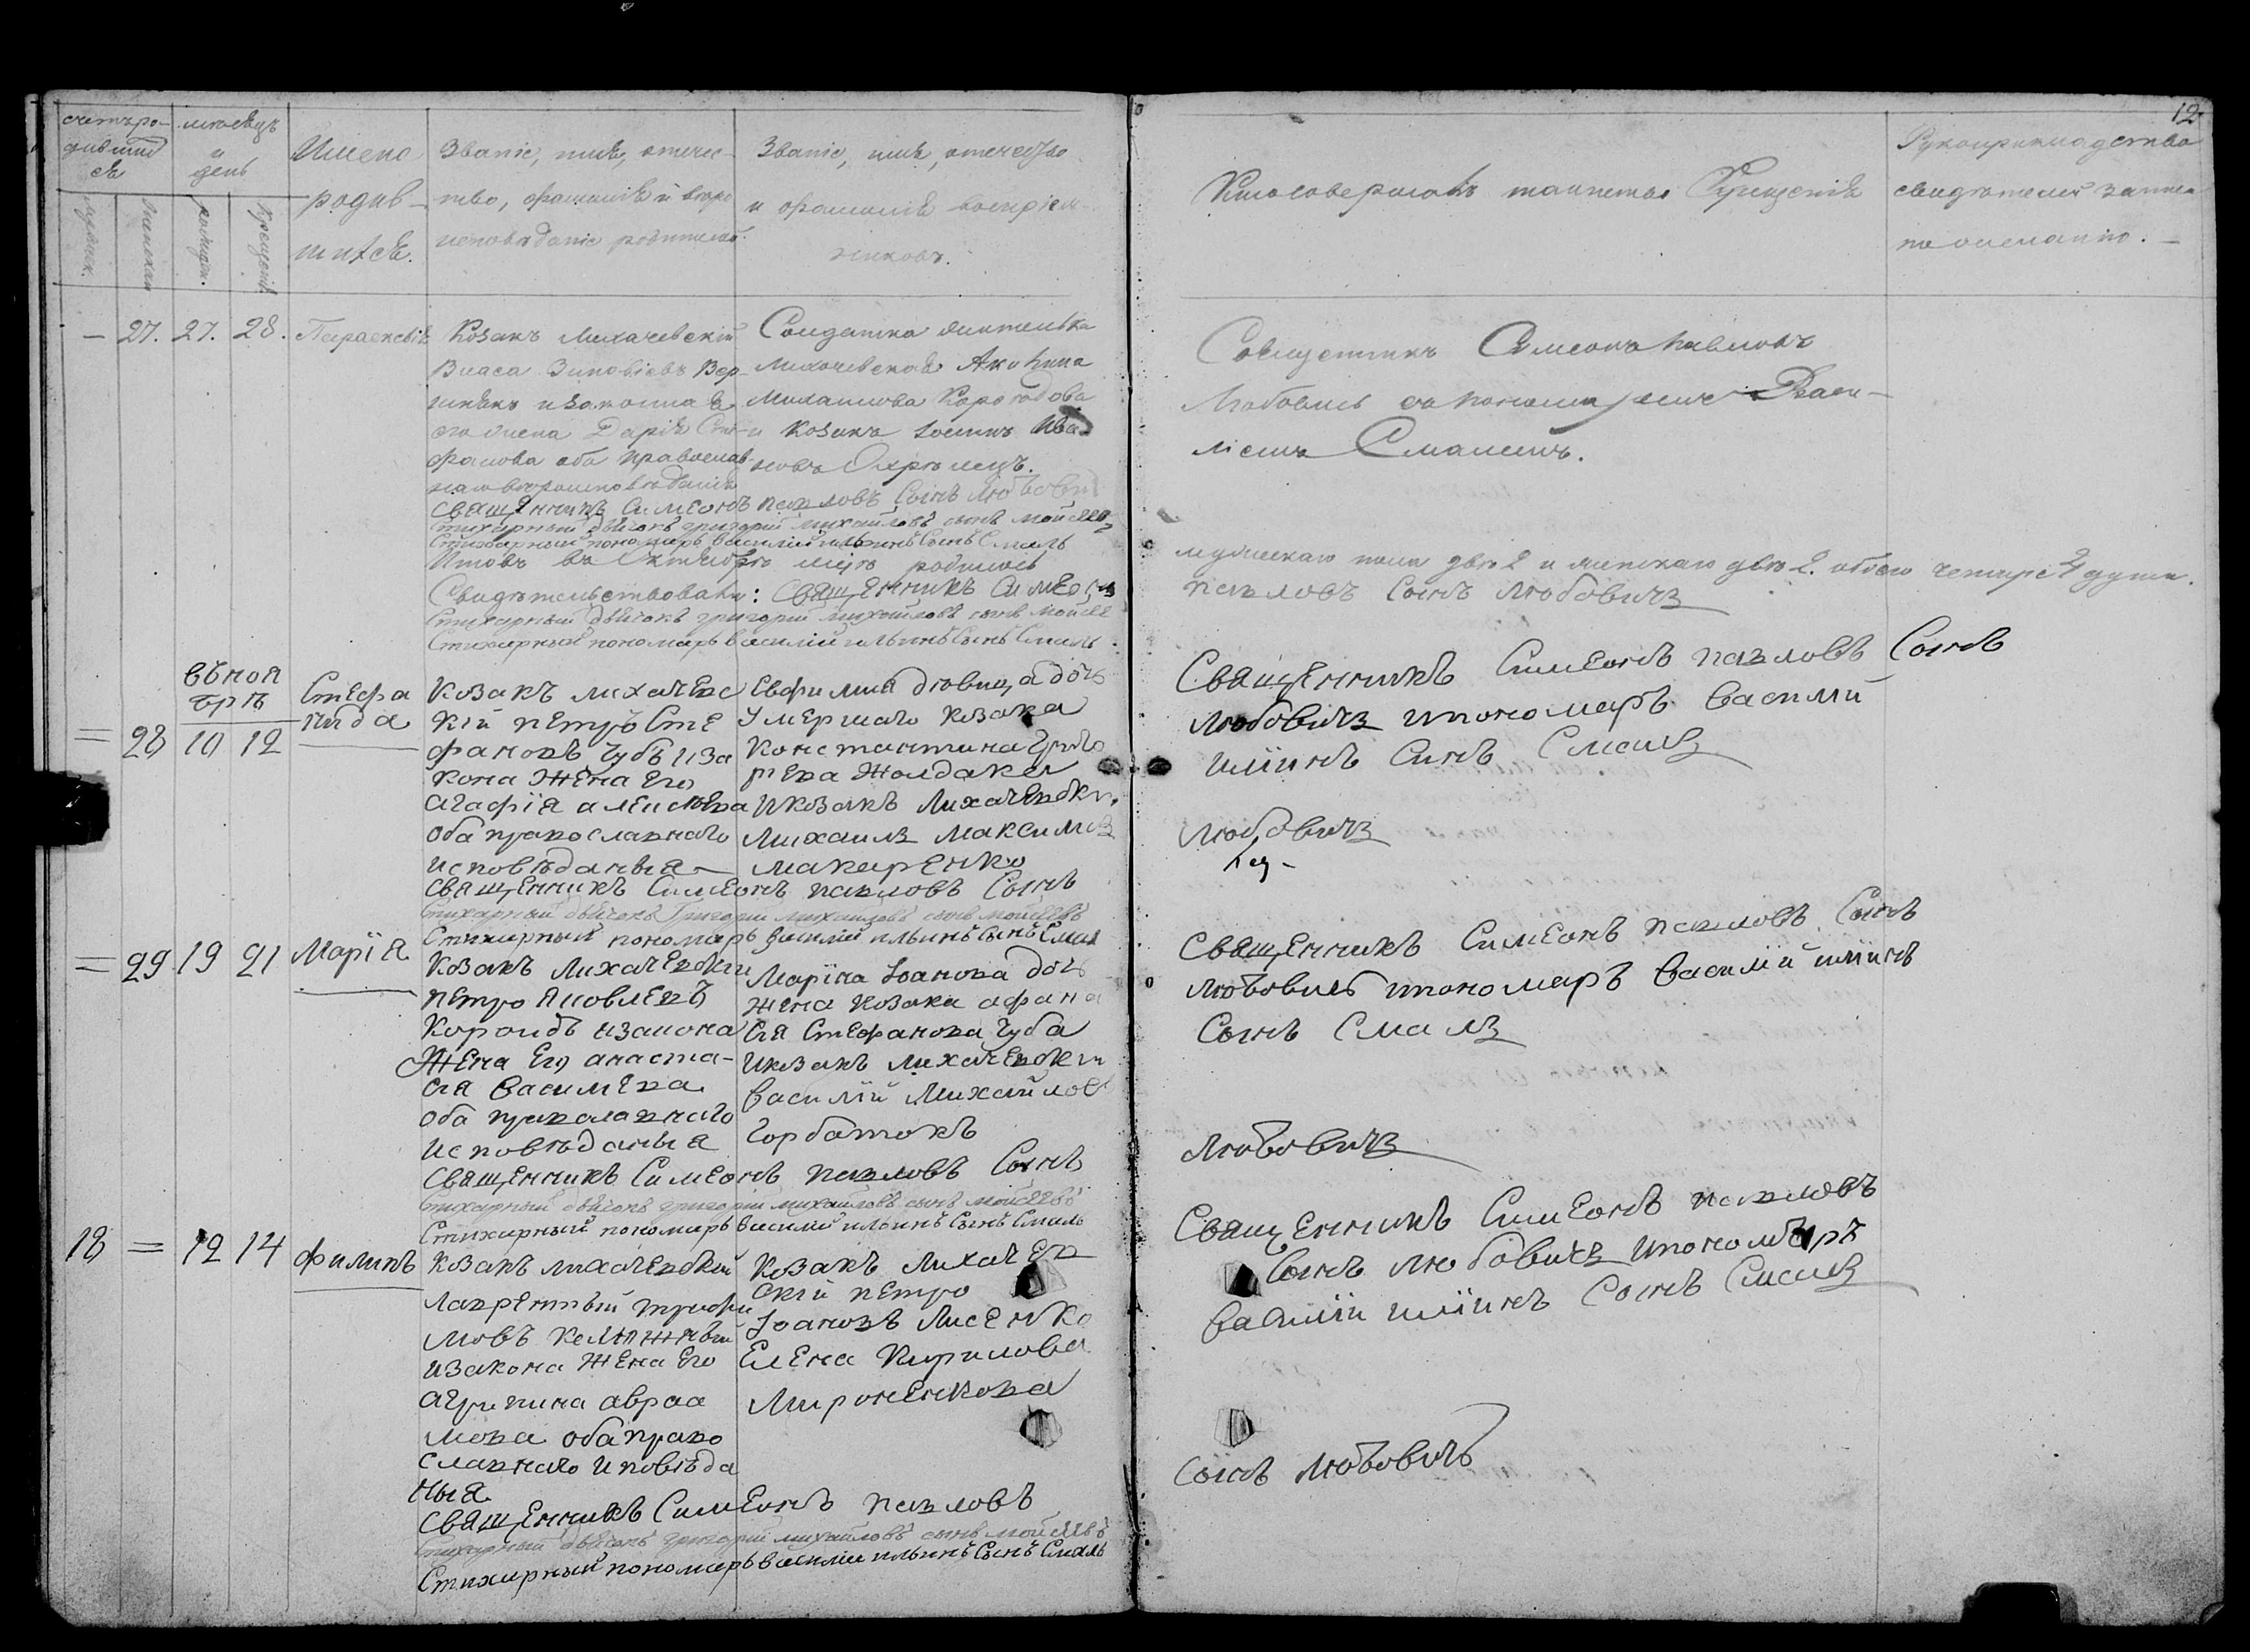 12
счетъ ро-
дивших
ся
мѣсяцъ
и
день
Имена
родив-
шихся.
Званіе, имя, отече-
ство, фамилія и веро
исповѣданіе родителей.
Званіе, имя, отечество
и фамилія воспріем-
никовъ.
Кто совершалъ таинство Крещенія
Рукоприкладство
свидѣтелей записи
по желанію.
рожден.
крещенія
— 27. 27. 28.
Параскевія
Козакъ Лихачевскій
Власа Зиновіевъ Вер-
и законная
его жена Дарія
оба православ-
наго вѣроисповѣданія
Солдатка жителька
Лихачевская
Михаилова
и козакъ Іосифъ Ива-
новъ
Священникъ Симеонъ Павловъ
Любовичъ съ пономаремъ Васи-
ліемъ Смалемъ.
священникъ Симеонъ павловъ Сынъ Любови
Стихарный дьячокъ григорій михайловъ сынъ мойсеев
Стихарный пономарь василий ильинъ Сынъ Смаль
Итого въ Октябрѣ мцѣ родилось
мужескаго пола двѣ 2 и женскаго двѣ 2. обоего четыре 4 души.
Свидѣтельствовали: Священникъ Симеонъ
павловъ Сынъ Любовичъ
Стихарный дьячокъ григорий михайловъ сынъ мойсее
Стихарный пономарь василий ильинъ Сынъ Смаль
въ ноя
брѣ
= 28 10 12
Стефа
нида
козакъ лихачевс
кій петръ Сте
фановъ Чубъ и за
кона жена его
агафія алексѣева
оба православнаго
исповѣданыя
Евфимия дѣвица дочь
умершаго козака
константина Григо
риева Жолдака
и козакъ Лихачевски
Михаилъ Максимов
макаренко
Священникъ Симеонъ павловъ Сынъ
Любовичъ и пономаръ василий
иліинъ Синъ Смаль
священникъ Симеонъ павловъ Сынъ
Любовичъ
Стихарный дьячокъ Григорий михайловъ сынъ мойсеевъ
Стихарный пономарь василий ильинъ Сынъ Смал
= 29 19 21
Марія
козакъ Лихачевский
петро Яковлевъ
и закона
жена Его анаста-
сия василева
оба православнаго
исповѣданыя
Маріна Іоанова дочь
жена козака афана
сия Стефанова Чуба
и козакъ лихачевски
василій Михайлов
Горбатокъ
священникъ Симеонъ павловъ Синъ
Любовичъ и пономаръ василій иліинъ
Сынъ Смаль
священникъ Симеонъ павловъ Сынъ
Любовичъ
Стихарный дьячокъ григорій михайловъ сынъ мойсеевъ
Стихарный пономарь василий ильинъ Сынъ Смаль
18 = 12 14
филипъ
козакъ лихачевский
лаврентый трофи
мовъ
и закона жена его
агрипина авраа
мова оба право
славнаго и повѣда
ныя
козакъ Лихачев
ский петро
Іоановъ Лисенко
Елена Кирилова
Мироненкова
Священникъ Симеонъ павловъ
Сынъ Любовичъ и пономаръ
василій иліинъ Сонъ Смаль
священникъ Симеонъ павловъ
Сынъ Любовичъ
Стихарный дьячокъ григорий михайловъ сынъ мойсеевъ
Стихарный пономарь василии ильинъ Сынъ Смаль